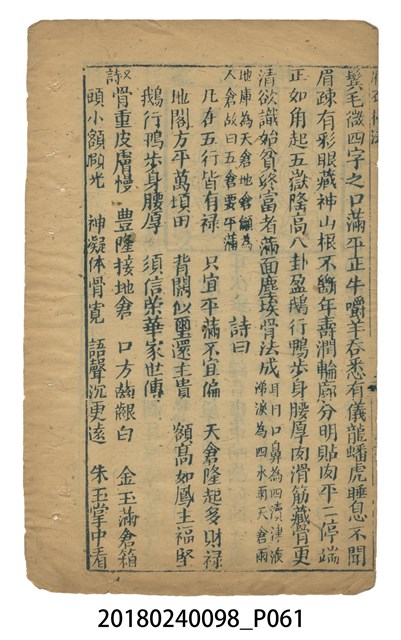 鬓毛微四字之口滿平正牛嚼羊吞悉有儀龍蟠虎睡息不聞
眉疎有彩眼藏神山根不斷年壽潤輪廓分明貼肉平三停端
正如角起五嶽隆高八卦盈鵝行鴨步身腰厚肉滑筋藏骨更
清欲識始貧終富者滿面塵埃骨法成耳目口鼻為四瀆津液
涕淚為四水兩天倉兩
地庫為天倉地倉額為
人倉故曰五倉要平滿
詩曰
凡在五行皆有祿 只宜平滿不宜偏 天倉隆起多財祿
地閣方平萬頃田 背闊似璽還主貴 額高如鳳主福堅
鵝行鴨步身腰厚 須信榮華家世傳
又詩
骨重皮膚慢 豊隆接地倉 口方齒齦白 金玉滿倉箱
頭小額顱光 神凝体骨寬 語聲沉更遠 朱玉掌中看
20180240098_P061